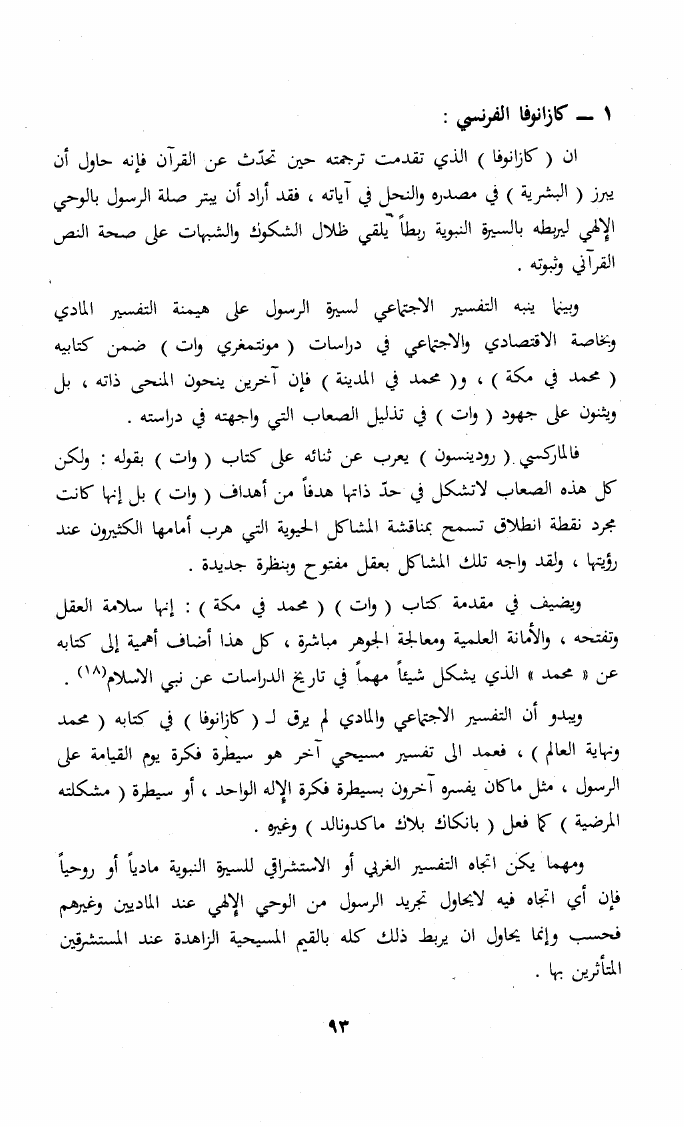 ١ ــ كازانوفا الفرنسي :
ان ( كازانوفا ) الذي تقدمت ترجمته حين تحدّث عن القرآن فإنه حاول أن
يبرز ( البشرية ) في مصدره والنحل في آياته ، فقد أراد أن يبتر صلة الرسول بالوحي
الإلهي ليربطه بالسيرة النبوية ربطاً يلقي ظلال الشكوك والشبهات على صحة النص
القرآني وثبوته .
وبينما ينبه التفسير الاجتماعي لسيرة الرسول على هيمنة التفسير المادي
وبخاصة الاقتصادي والاجتماعي في دراسات ( مونتمغري وات ) ضمن كتابيه
( محمد في مكة ) ، و( محمد في المدينة ) فإن آخرين ينحون المنحى ذاته ، بل
ويثنون على جهود ( وات ) في تذليل الصعاب التي واجهته في دراسته .
فالماركسي ( رودينسون ) يعرب عن ثنائه على كتاب ( وات ) بقوله : ولكن
كل هذه الصعاب لاتشكل في حدّ ذاتها هدفاً من أهداف ( وات ) بل إنها كانت
مجرد نقطة انطلاق تسمح بمناقشة المشاكل الحيوية التي هرب أمامها الكثيرون عند
رؤيتها ، ولقد واجه تلك المشاكل بعقل مفتوح وبنظرة جديدة .
ويضيف في مقدمة كتاب ( وات ) ( محمد في مكة ) : إنها سلامة العقل
وتفتحه ، والأمانة العلمية ومعالجة الجوهر مباشرة ، كل هذا أضاف أهمية إلى كتابه
عن « محمد » الذي يشكل شيئاً مهماً في تاريخ الدراسات عن نبي الاسلام(١٨) .
ويبدو أن التفسير الاجتماعي والمادي لم يرق لـ ( كازانوفا ) في كتابه ( محمد
ونهاية العالم ) ، فعمد الى تفسير مسيحي آخر هو سيطرة فكرة يوم القيامة على
الرسول ، مثل ماكان يفسره آخرون بسيطرة فكرة الإله الواحد ، أو سيطرة ( مشكلته
المرضية ) كما فعل ( بانكاك بلاك ماكدونالد ) وغيره .
ومهما يكن اتجاه التفسير الغربي أو الاستشراقي للسيرة النبوية مادياً أو روحياً
فإن أي اتجاه فيه لايحاول تجريد الرسول من الوحي الإلهي عند الماديين وغيرهم
فحسب وإنما يحاول ان يربط ذلك كله بالقيم المسيحية الزاهدة عند المستشرقين
المتأثرين بها .
٩٣